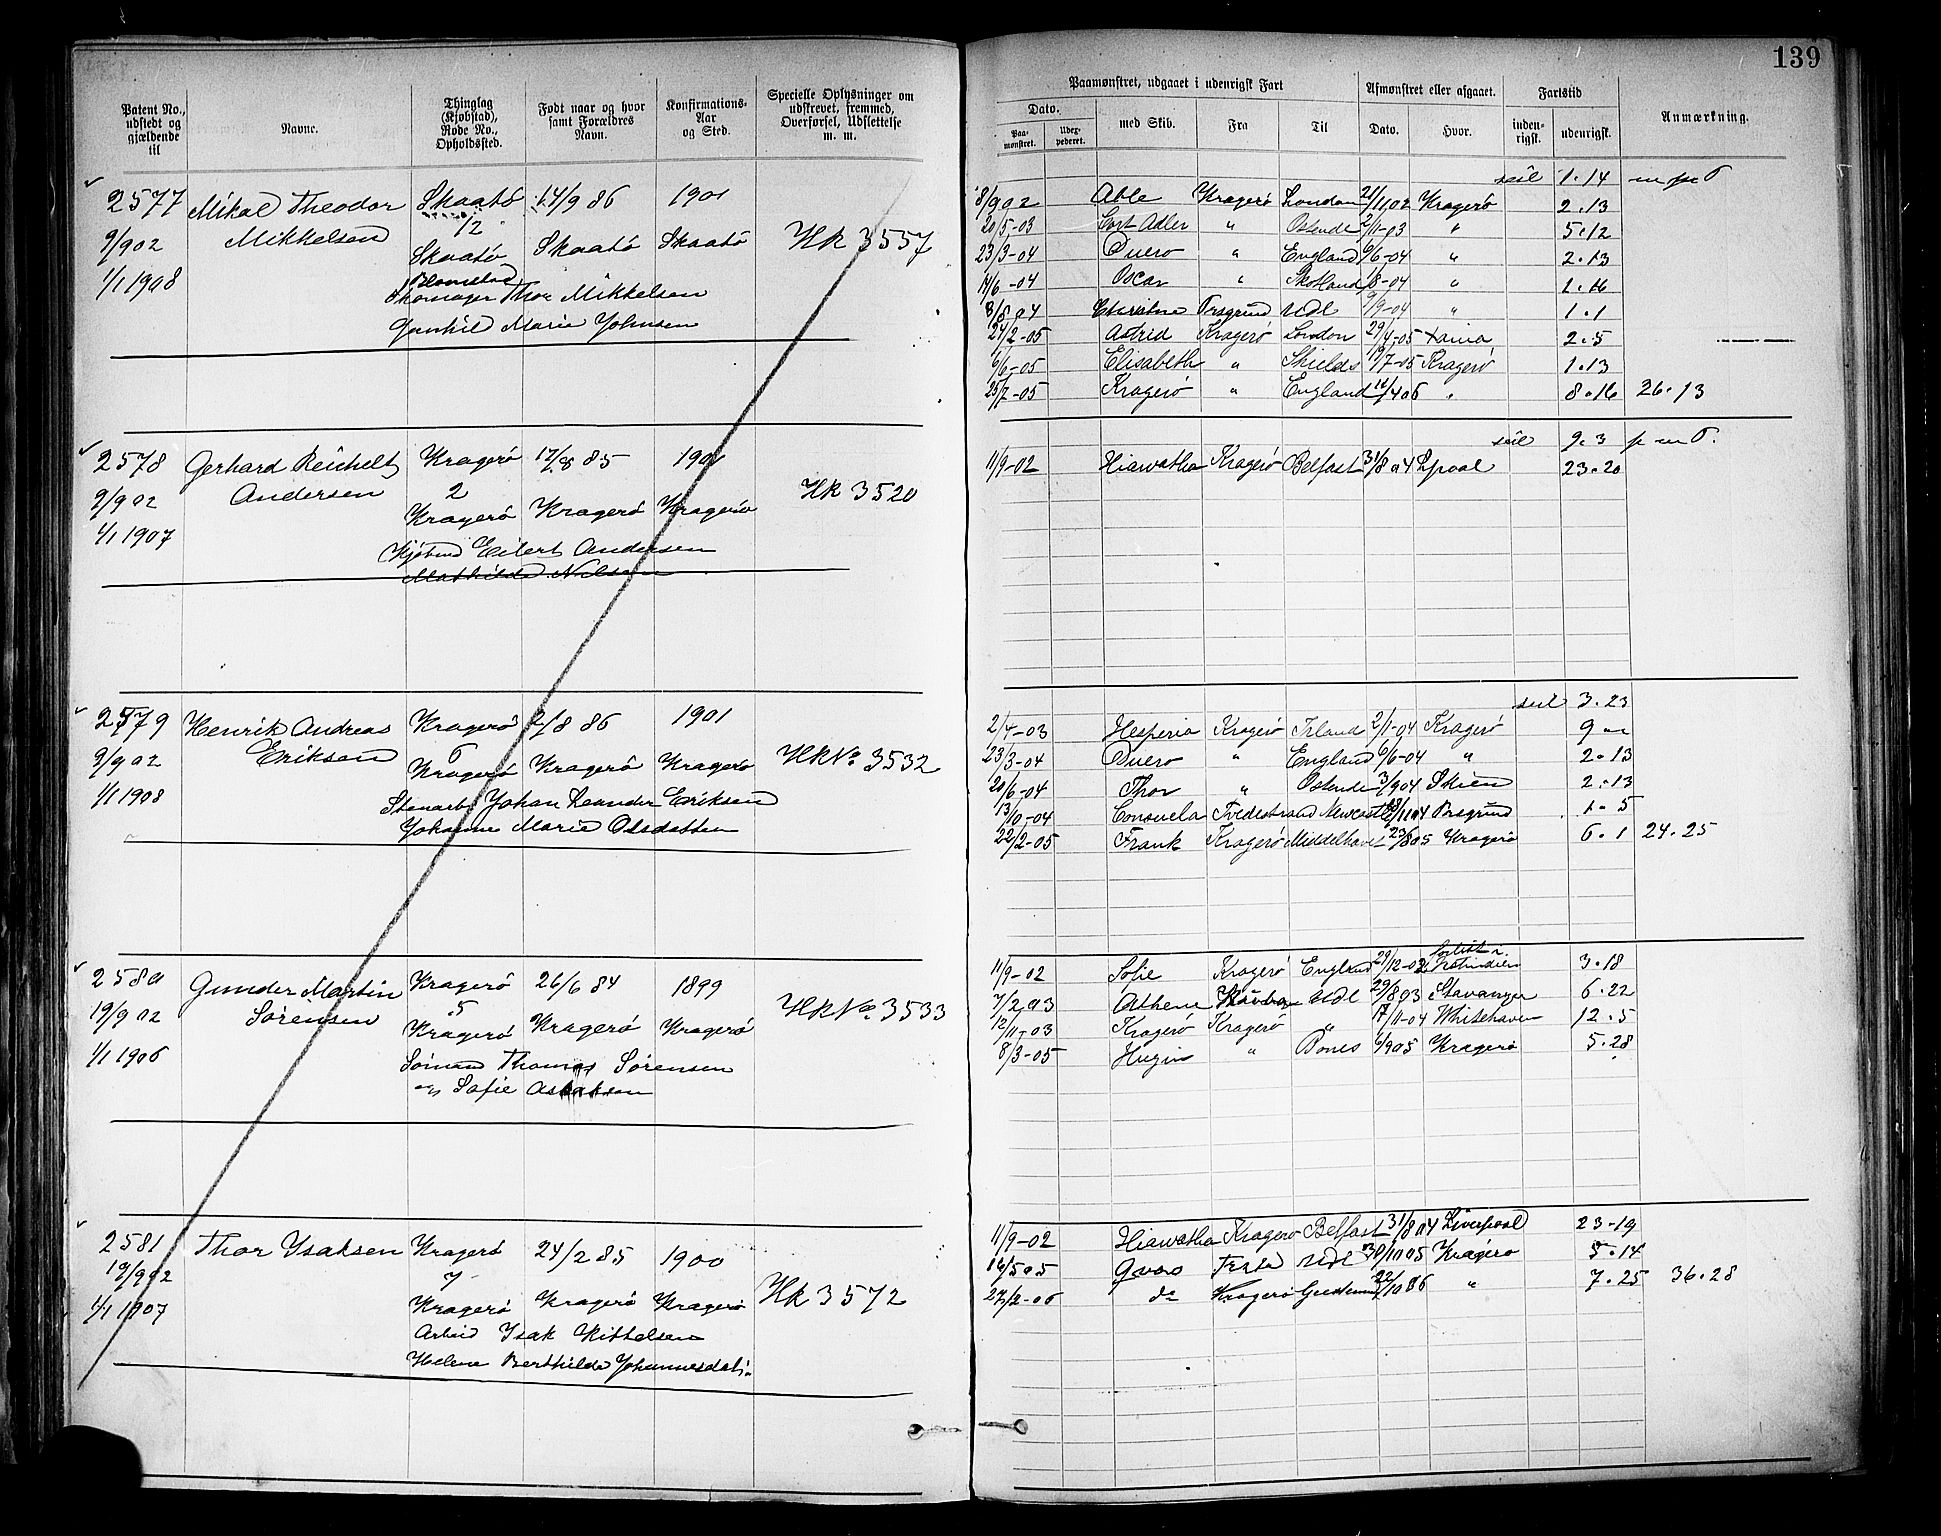 139
Patent No., udstedt og gjældende til
Navne.
Thinglag (Kjøbstad), Rode No., Opholdssted.
Født naar og hvor samt Forældres Navn.
Konfirmations-Aar og Sted.
Specielle Oplysninger om udskrevet, fremmed, Overførsel, Udslettelse m. m.
Paamønstret, udgaaet i udenrigsk Fart
Afmønstret eller afgaaet.
Fartstid
Anmærkning.
Dato.
Paamønstret.
med Skib.
Fra
Til
Dato.
Hvor.
indenrigsk.
udenrigsk.
2577 Mikal Theodor Skaatø 14/9 86 1901
Mikkelsen 12
9/9 02 Skaatø Skaatø Skaatø Hk 3557
1/1 1908
Skomager Thor Mikkelsen
Gunhild Marie Johnsen
seil 1.14
8/9 02 Able Kragerø London 21/11 02 Kragerø 2.13
20/5-03 Cort Adler " Ostende 2/11-03 " 5.12
23/3-04 Duero " England 6/6-04 " 2.13
14/6-04 Oscar " Skotland /8-04 " 1.16
8/8 04 Porsgrund Udl 9/9-04 " 1.1
24/2-05 Astrid Kragerø London 29/4-05 2.5
6/6-05 Elisabeth " Shields 19/7-05 Kragerø 1.13
25/7-05 Kragerø " England 16/4 06 " 8.16 26.13
2578 Gerhard Reichelt Kragerø 17/8 85 1901
Andersen 2
9/9 02 Kragerø Kragerø Kragerø Hk 3520
1/1 1907
Kjøbmd Eilert Andersen
Mathilde Nilsen
seil 9.3
11/9-02 Hiawatha Kragerø Belfast 31/8 04 Lpool 23.20
2579 Henrik Andreas Kragerø 2/8 86 1901
Eriksen 6
9/9 02 Kragerø Kragerø Kragerø Hk No. 3532
1/1 1908
Stenarb. Johan Leander Eriksen
Johanne Marie Olsdatter
seil 3.23
2/4-03 Hesperia Kragerø Irland 2/1-04 Kragerø 9
23/3-04 Duero " England 6/6-04 " 2.13
20/6-04 Thor " Ostende 3/9 04 Skien 2.13
13/10-04 Consuela Tvedestrand Newcastle 18/11 04 Porsgrund 1.5
22/2-05 Frank Kragerø Middelhavet 23/8 05 Kragerø 6.1 24.25
2580 Gunder Martin Kragerø 26/6 84 1899
Sørensen 5
19/9 02 Kragerø Kragerø Kragerø Hk No. 3533
1/1 1906
Sømand Thomas Sørensen
og Sofie
forlist i
11/9-02 Sofie Kragerø England 29/12-03 Vestindien 3.18
7/2 03 Athene Udl 29/8 03 Stavanger 6.22
12/11-03 Kragerø Kragerø " 17/11-04 Whitehaven 12.5
8/3-05 Hugin " Bones 6/9 05 Kragerø 5.28
2581 Thor Ysaksen Kragerø 24/2 85 1900
19/9 02 7
1/1 1907 Kragerø Kragerø Kragerø Hk 3572
Arbeid Ysak Kittelsen
Helene Berthilde Johannesdatr.
11/9-02 Hiawatha Kragerø Belfast 31/8 04 Liverpool 23-19
16/5 05 Udl 30/10 05 Kragerø 5.14
27/2-06 do Kragerø 22/10 06 " 7.25 36.28